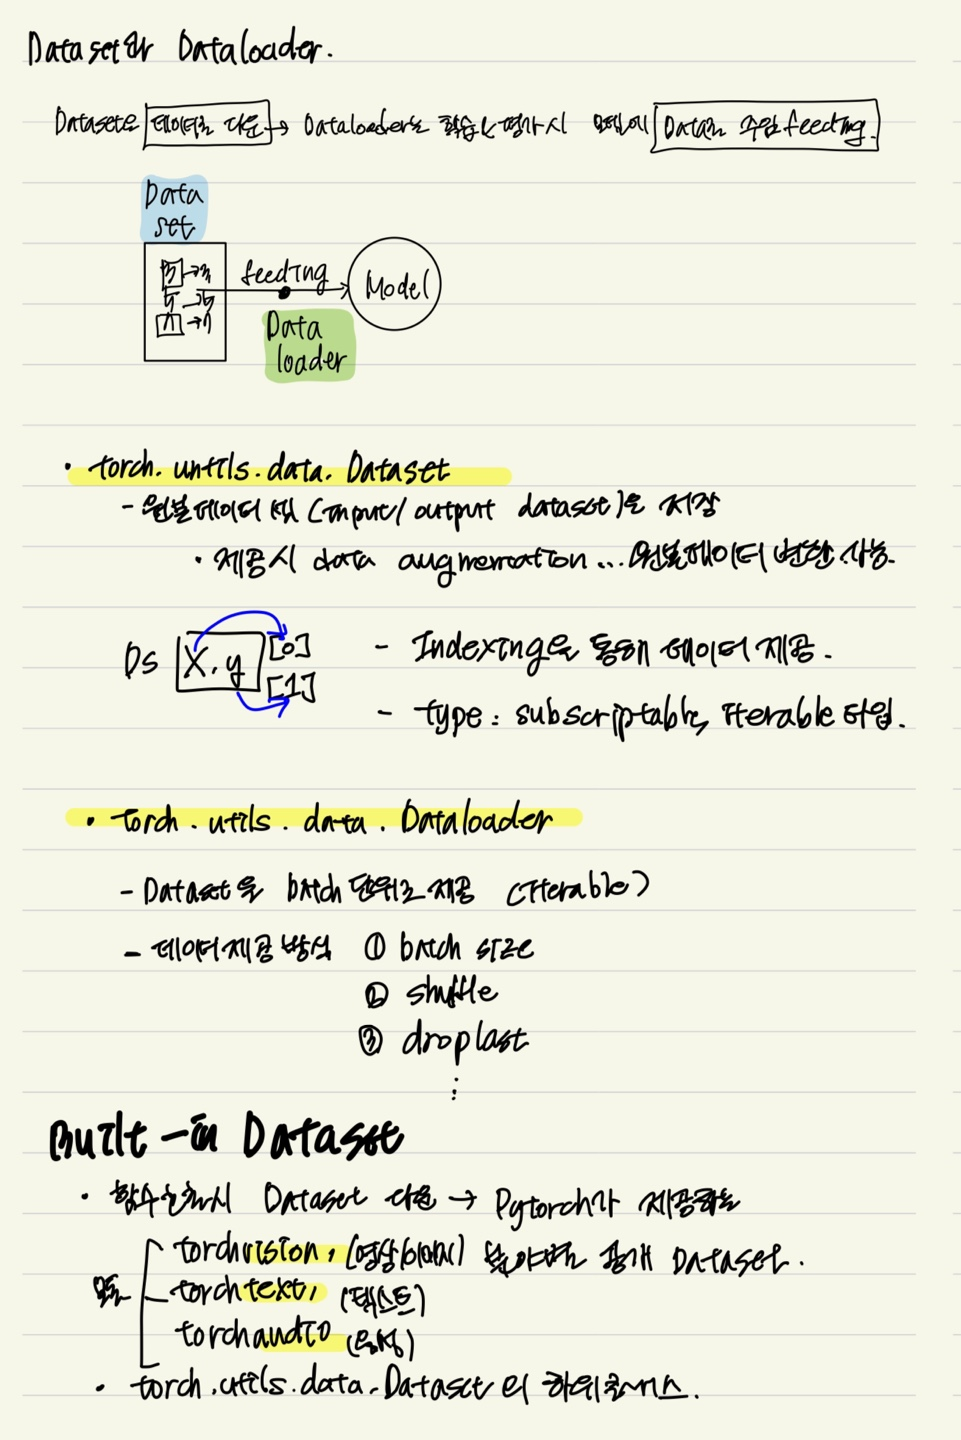 Dataset와 Dataloader.
Dataset은 데이터로 다운 → Dataloader는 학습 & 평가시 모델에 Data로 주입 feeding.
Data
set
feeding
Model
Data
loader
• torch.untils.data.Dataset
- 원본데이터 셋 (input/output dataset)을 저장
• 제공시 data augmentation ... 원본데이터 변환 가능.
Ds X, y [0]
[1]
- Indexing을 통해 데이터 제공.
- type : subscriptable, iterable 타입.
• torch.utils.data.Dataloader
- Dataset을 batch 단위로 제공 (iterable)
- 데이터 제공 방식 ① batch size
② shuffle
③ drop last
⋮
Built-in Dataset
• 함수 호출시 Dataset 다운 → Pytorch가 제공하는
모듈
torchvision, (영상/이미지) 분야별 공개 Dataset.
torchtext, (텍스트)
torchaudio (음성)
• torch.utils.data.Dataset의 하위클래스.